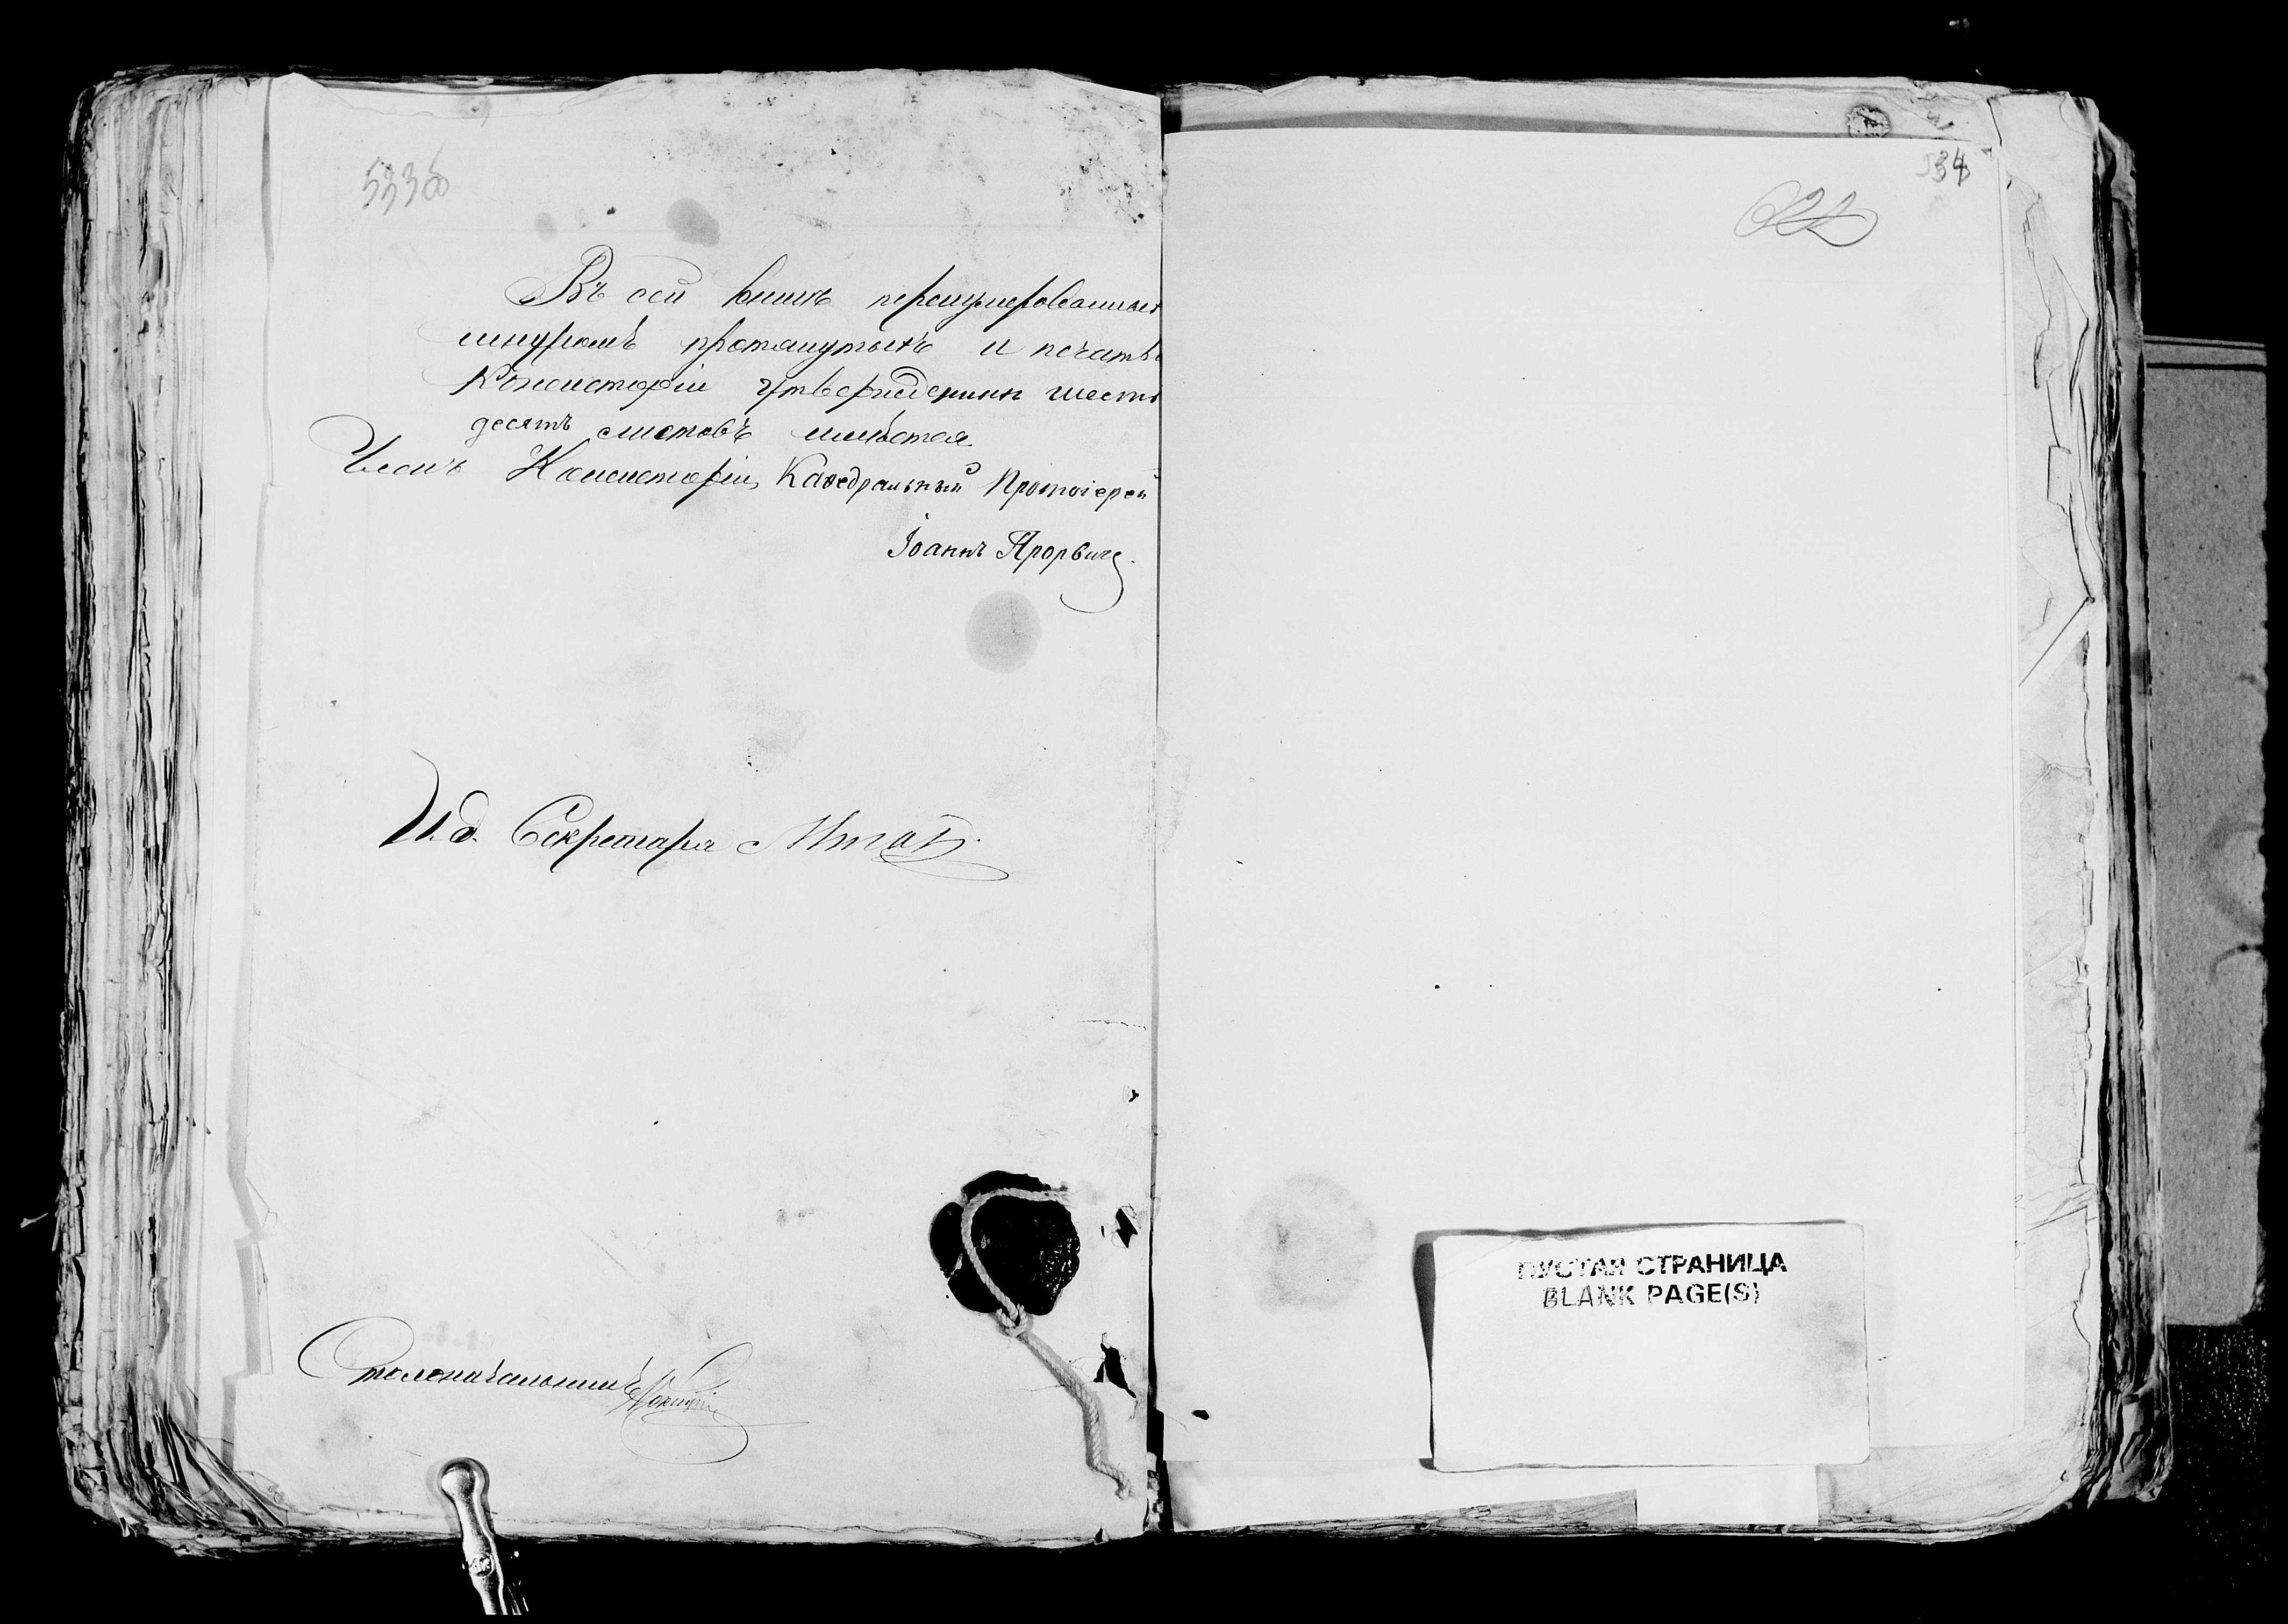 533об
Въ сей книгѣ перенумерованныхъ
шнуромъ протянутыхъ и печатью
Консисторіи утвержденныхъ шесть
десятъ листовъ имѣется
Членъ Консисторіи, Каѳедральный Протоіерей
Іоаннъ
И. д. Секретаря
Столоначальникъ
534
ПУСТАЯ СТРАНИЦА
BLANK PAGE(S)